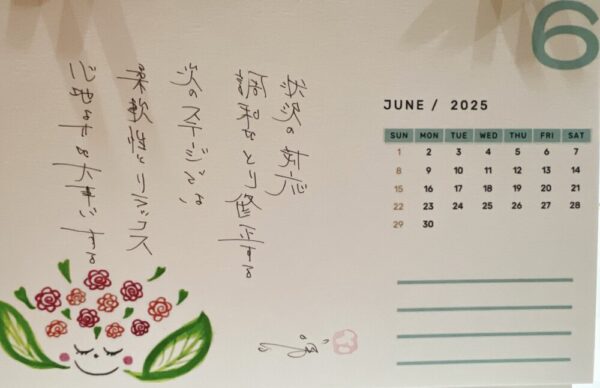 6
状況の対応
調和をとり修正する
次のステージでは
柔軟性とリラックス
心地よさを大事にする
JUNE / 2025
SUN MON TUE WED THU FRI SAT
1 2 3 4 5 6 7
8 9 10 11 12 13 14
15 16 17 18 19 20 21
22 23 24 25 26 27 28
29 30